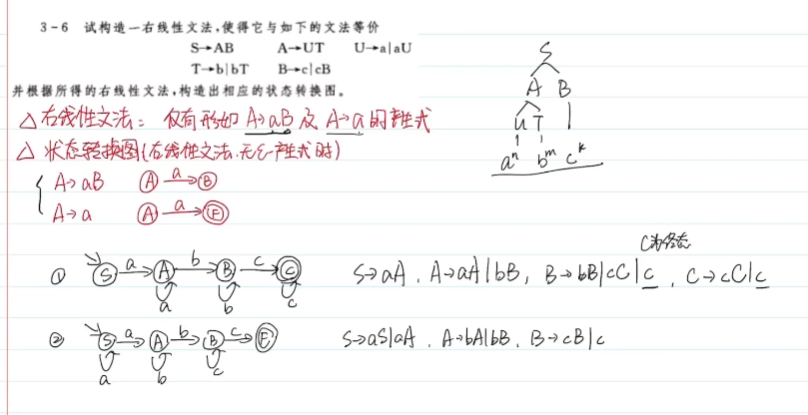 3-6 试构造一右线性文法,使得它与如下的文法等价
S→AB A→UT U→a|aU
T→b|bT B→c|cB
并根据所得的右线性文法,构造出相应的状态转换图。
△ 右线性文法: 仅有形如 A→aB 及 A→a 的产生式
△ 状态转换图(右线性文法.无ε-产生式时)
A→aB A a B
A→a A a F
S
A B
U T
aⁿ bᵐ cᵏ
C为终态
① S a A b B c C S→aA . A→aA|bB, B→bB|cC|c , C→cC|c
a b c
② S a A b B c F S→aS|aA . A→bA|bB , B→cB|c
a b c